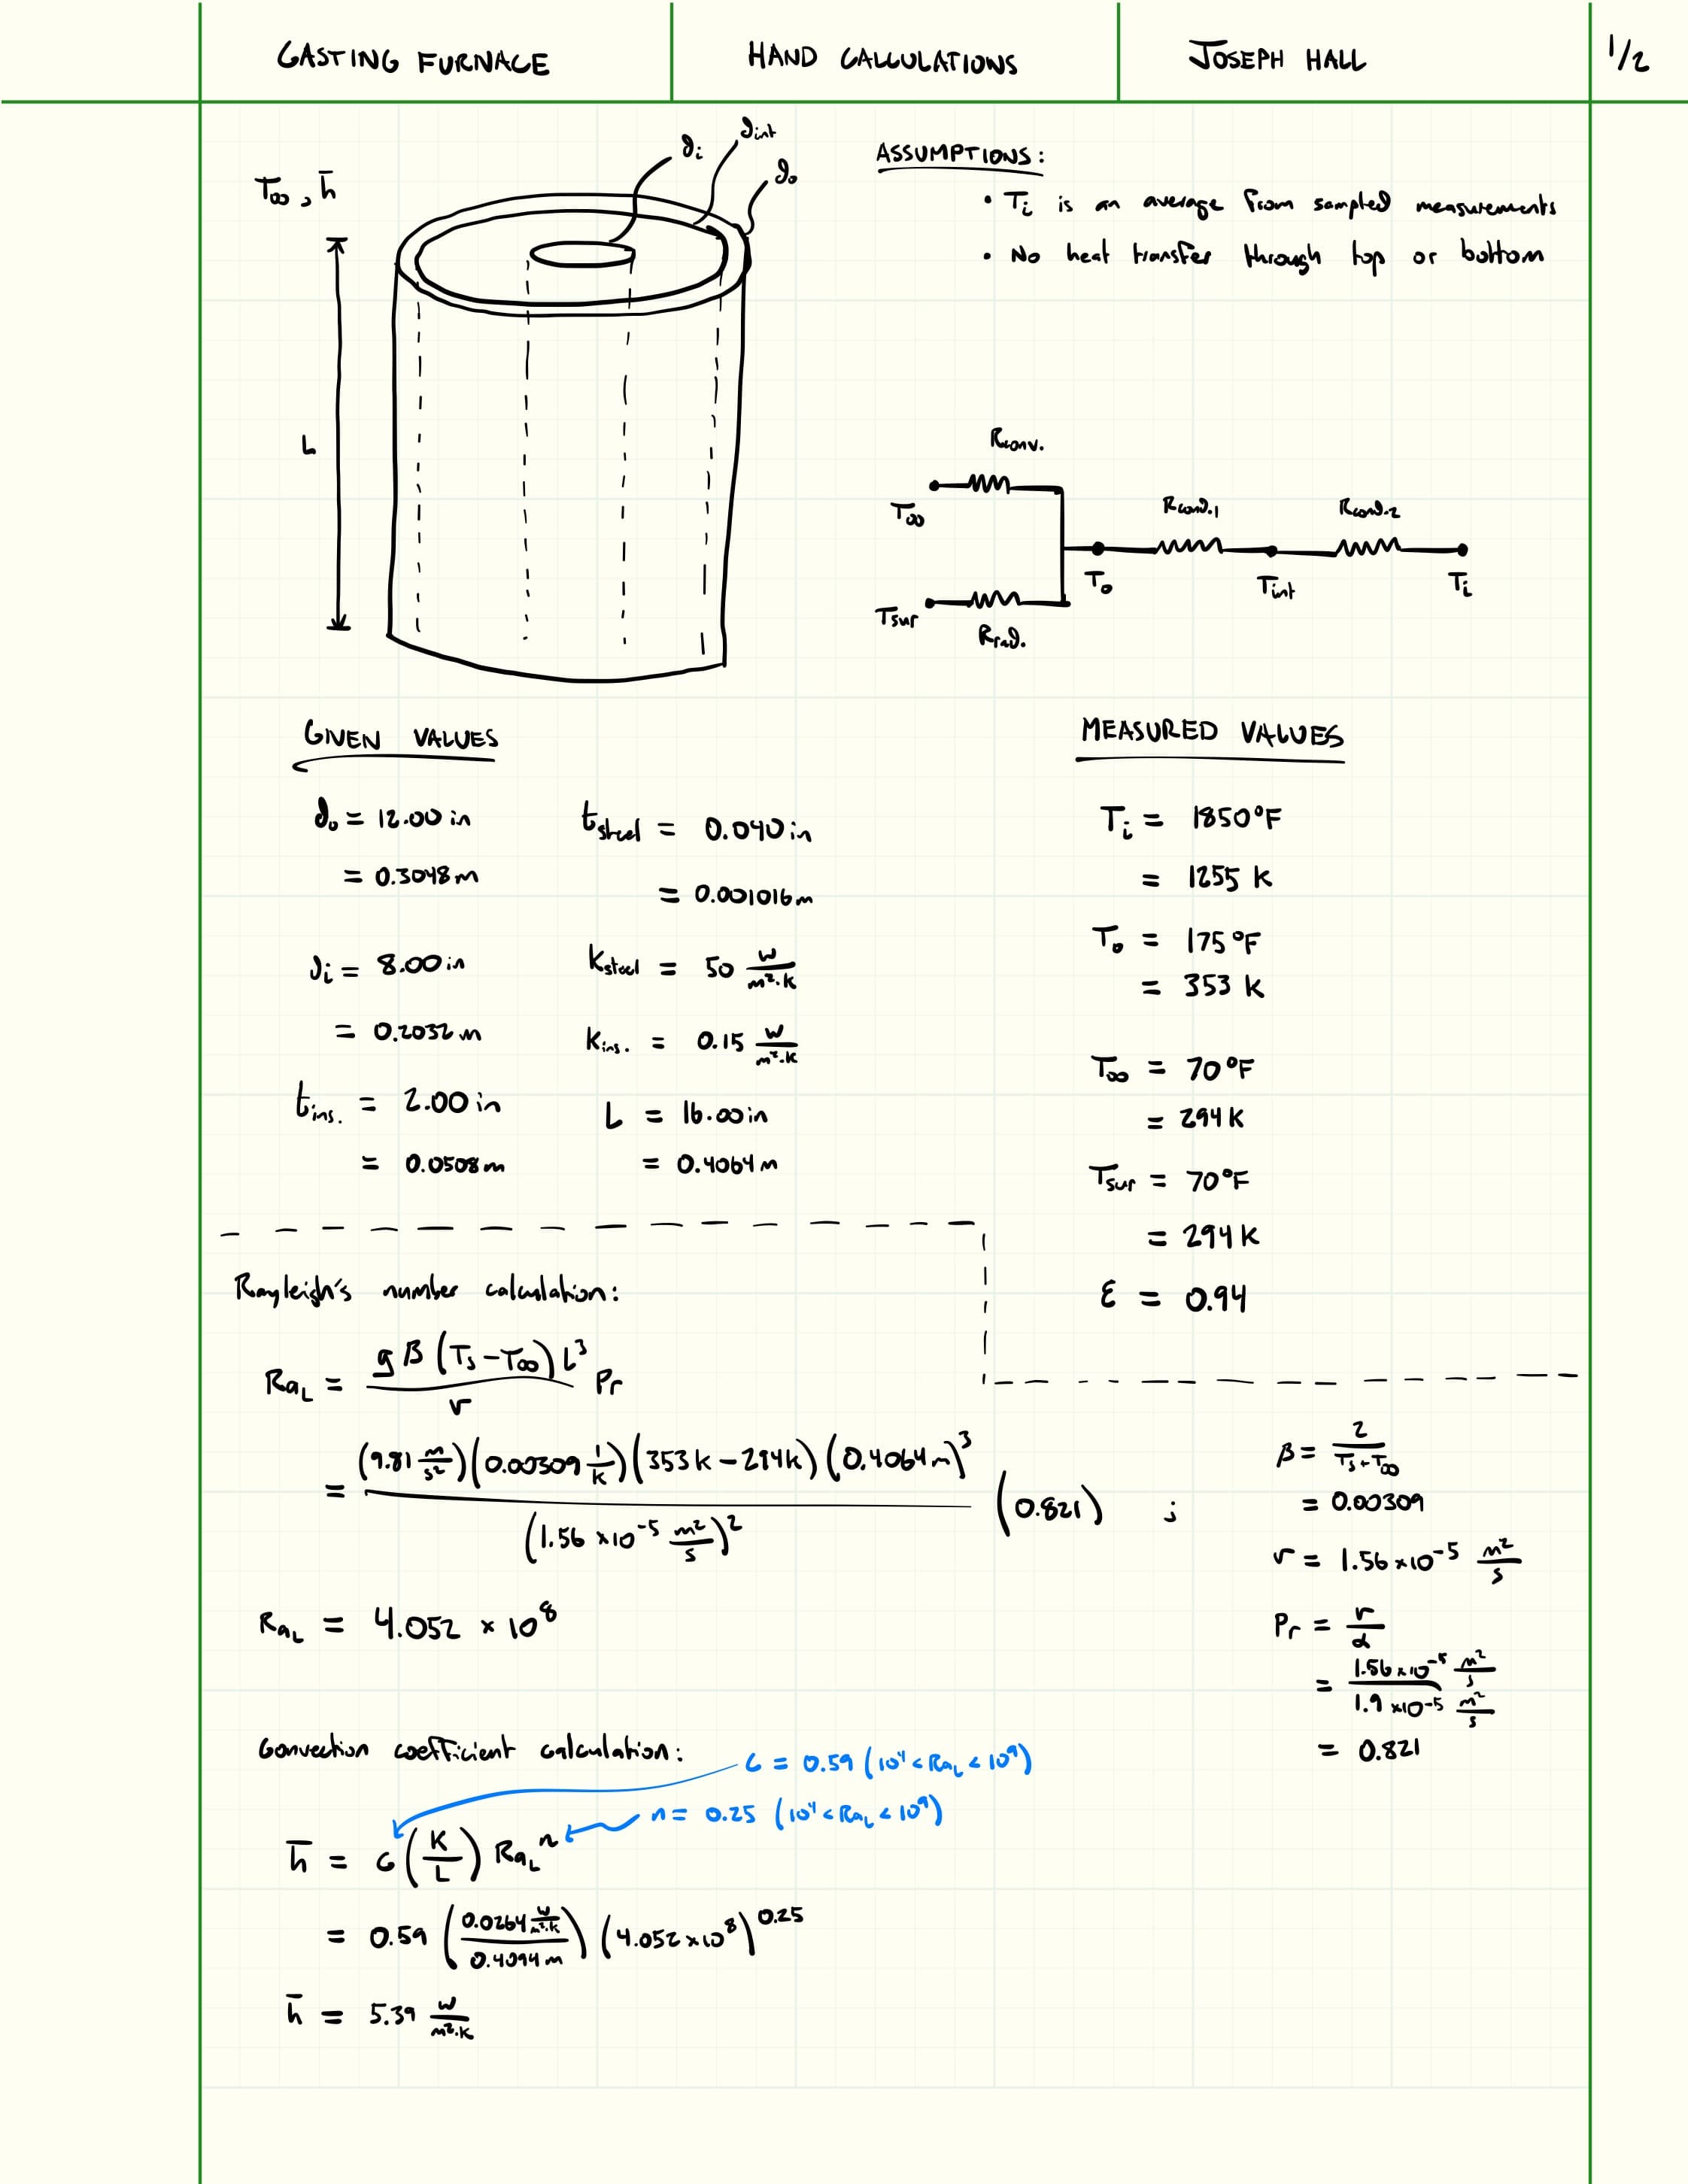 CASTING FURNACE
HAND CALCULATIONS
JOSEPH HALL
1/2
T∞, h̄
dᵢ
d_int
d₀
L
ASSUMPTIONS:
• Tᵢ is an average from sampled measurements
• No heat transfer through top or bottom
R_conv.
T∞
R_cond.1
R_cond.2
T₀
T_int
Tᵢ
T_sur
R_rad.
GIVEN VALUES
d₀ = 12.00 in
= 0.3048 m
dᵢ = 8.00 in
= 0.2032 m
t_ins. = 2.00 in
= 0.0508 m
t_steel = 0.040 in
= 0.001016 m
K_steel = 50 W/m²·K
K_ins. = 0.15 W/m²·K
L = 16.00 in
= 0.4064 m
MEASURED VALUES
Tᵢ = 1850°F
= 1255 K
T₀ = 175°F
= 353 K
T∞ = 70°F
= 294 K
T_sur = 70°F
= 294 K
ε = 0.94
Rayleigh's number calculation:
Ra_L = gβ(Ts - T∞)L³/ν Pr
= (9.81 m/s²)(0.00309 1/K)(353K - 294K)(0.4064 m)³/(1.56 ×10⁻⁵ m²/s)² (0.821) ;
Ra_L = 4.052 × 10⁸
β = 2/Ts+T∞
= 0.00309
ν = 1.56 ×10⁻⁵ m²/s
Pr = ν/α
= 1.56 ×10⁻⁵ m²/s / 1.9 ×10⁻⁵ m²/s
= 0.821
Convection coefficient calculation:
C = 0.59 (10⁴ < Ra_L < 10⁹)
n = 0.25 (10⁴ < Ra_L < 10⁹)
h̄ = C(K/L) Ra_Lⁿ
= 0.59 (0.0264 W/m²·K / 0.4094 m) (4.052 ×10⁸)^0.25
h̄ = 5.39 W/m²·K